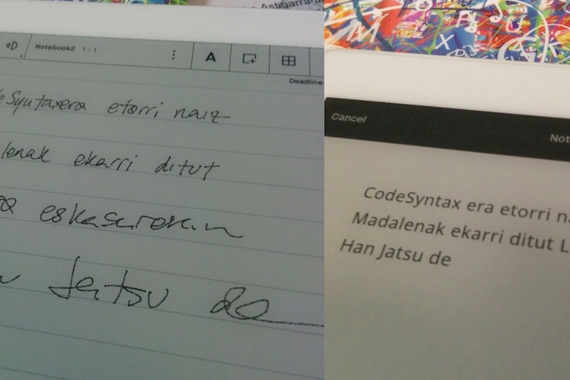 Notebook2 1 - 1
A
Deadline
eSyntaxera etorri naiz
lenak ekarri ditut
eskasarekin
Jatsu de
Cancel
Not
CodeSyntax era etorri na
Madalenak ekarri ditut L
Han Jatsu de